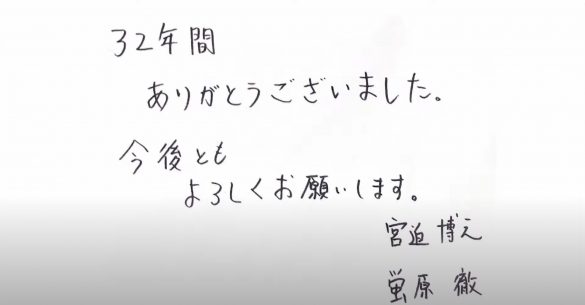 32年間
ありがとうございました。
今後とも
よろしくお願いします。
宮迫博之
蛍原 徹